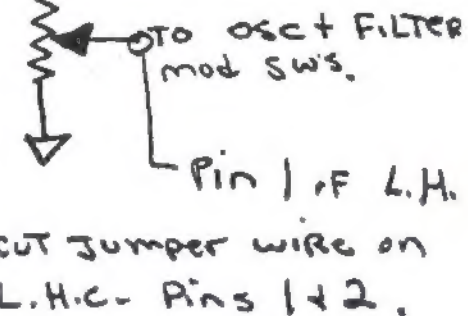 TO OSC + FILTER
mod SW'S.
Pin 1 OF L.H.
CUT Jumper wire on
L.H.C- Pins 1 & 2.